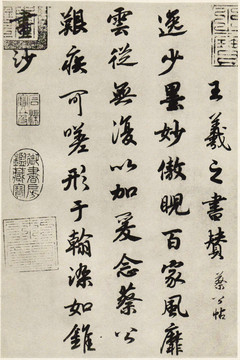 王羲之書贊 蔡公帖
逸少墨妙傲睨百家風靡
雲從無復以加爰念蔡公
艱疾可嗟形于翰染如錐
畫沙
石渠寶笈
御書房鑑藏寶